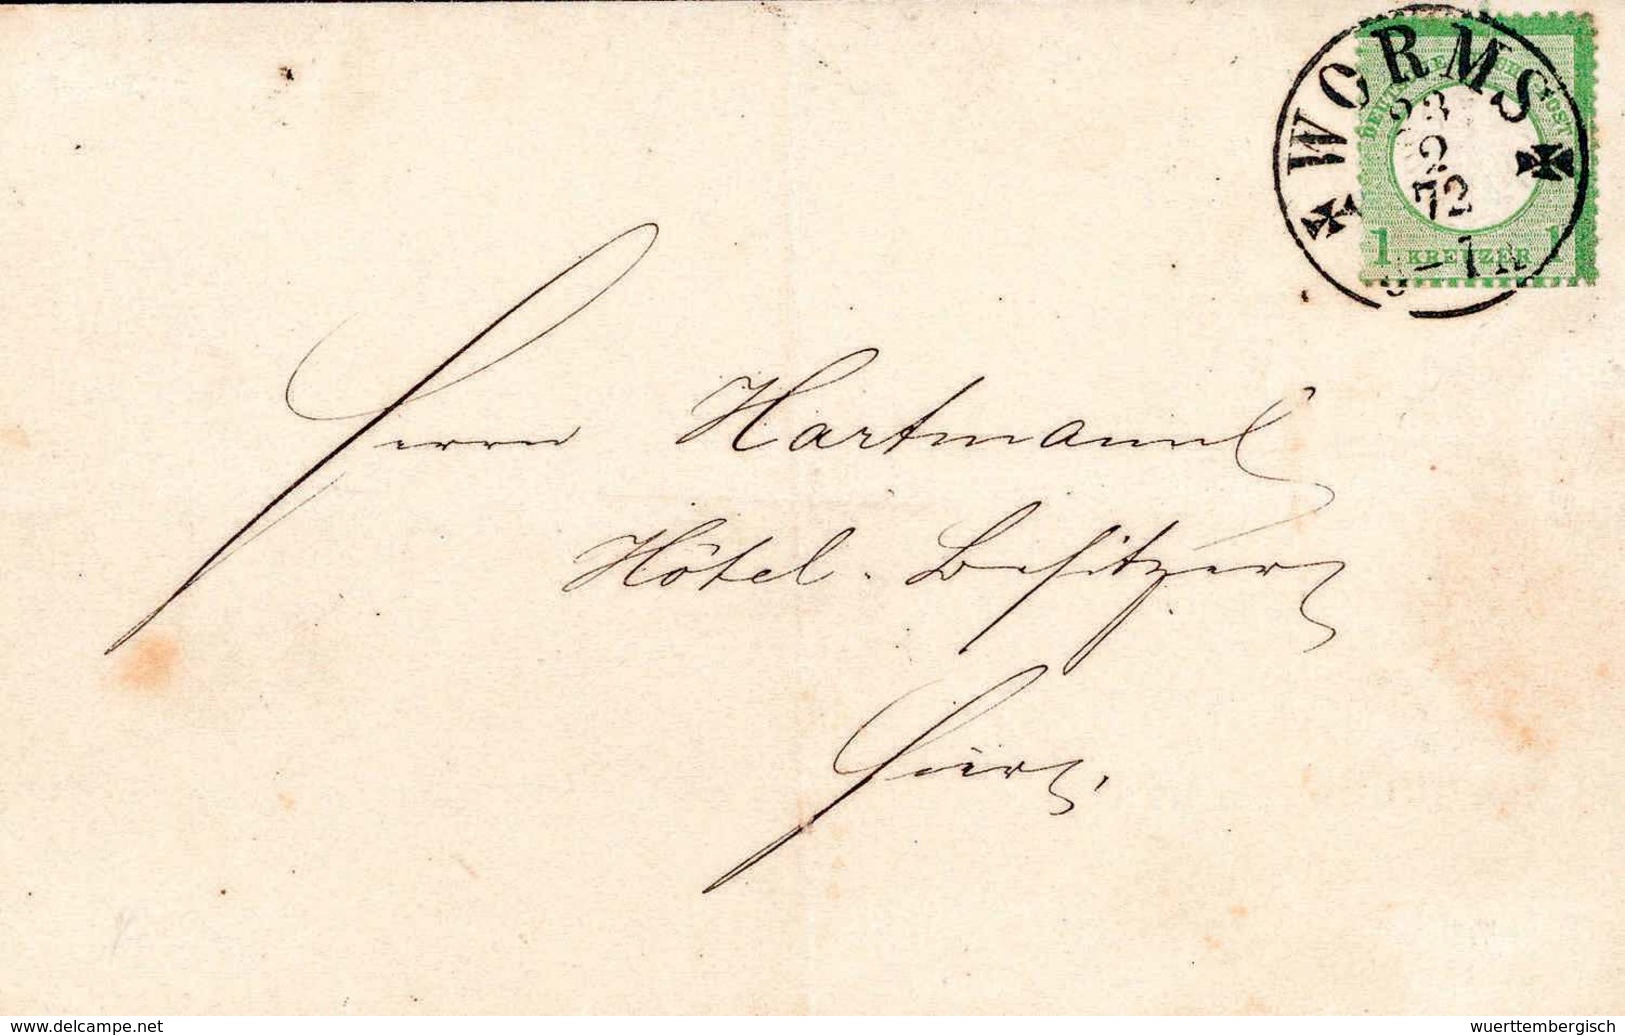 WORMS
23
2
72
DEUTSCHE REICHS POST
1 KREUZER 1
Herrn Hartmann
Hôtel-Besitzer
hier.
www.delcampe.net
wuerttembergisch